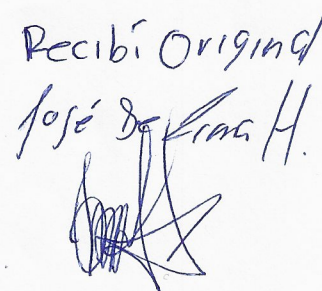 Recibí Original
José De Lira H.